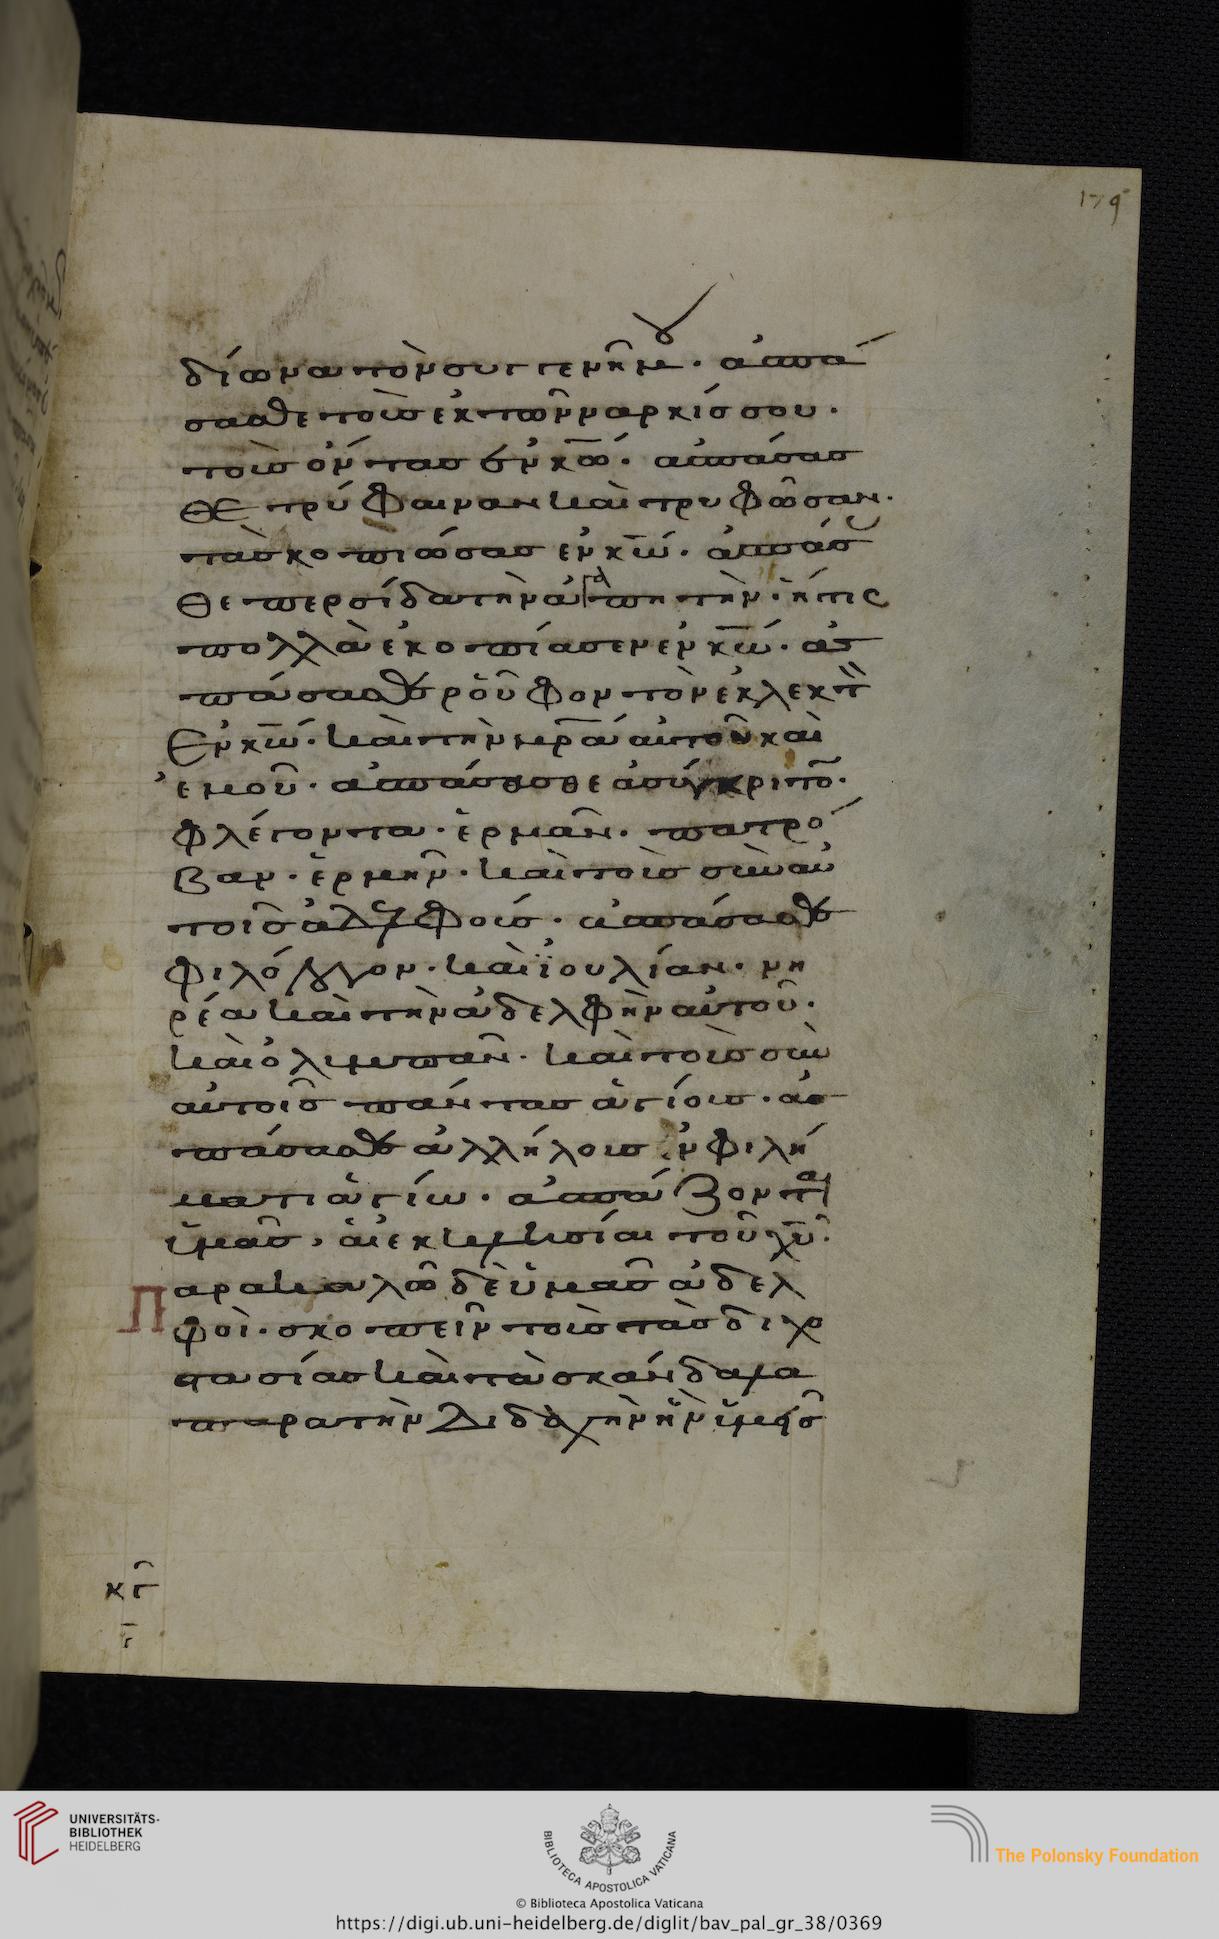 179
δίωνα τὸν συγγενῆ μου. ἀσπά
σασθε τοὺς ἐκ τῶν ναρκίσσου.
τοὺς ὄντας ἐν κ̅ω̅. ἀσπάσας
θε τρύφαιναν καὶ τρυφῶσαν.
τὰς κοπιώσας ἐν κ̅ω̅. ἀσπάσας
θε περσίδα τὴν ἀγαπητὴν. ἥτις
πολλὰ ἐκοπίασεν ἐν κ̅ω̅. ἀσ
πάσασθε ῥοῦφον τὸν ἐκλεκτὸν
ἐν κ̅ω̅. καὶ τὴν μ̅ρ̅α̅ αὐτοῦ καὶ
ἐμοῦ. ἀσπάσασθε ἀσύγκριτον.
φλέγοντα. ἑρμᾶν. πατρό
βαν. ἑρμῆν. καὶ τοὺς σὺν αὐ
τοῖς ἀδελφοὺς. ἀσπάσασθε
φιλόλογον. καὶ ϊουλίαν. νη
ρέα καὶ τὴν ἀδελφὴν αὐτοῦ.
καὶ ὀλυμπᾶν. καὶ τοὺς σὺν
αὐτοῖς πάντας ἁγίους. ἀσ
πάσασθε ἀλλήλους ἐν φιλή
ματι ἁγίω. ἀσπάζονται
ὑμᾶς, αἱ ἐκκλησίαι τοῦ χ̅υ̅.
Παρακαλῶ δὲ ὑμᾶς ἀδελ
φοὶ. σκοπεῖν τοὺς τὰς διχο
στασίας καὶ τὰ σκάνδαλα
παρα τὴν διδαχὴν ἣν ὑμεῖς
κγ
γ̅
UNIVERSITÄTS-
BIBLIOTHEK
HEIDELBERG
BIBLIOTECA APOSTOLICA VATICANA
The Polonsky Foundation
© Biblioteca Apostolica Vaticana
https://digi.ub.uni-heidelberg.de/diglit/bav_pal_gr_38/0369